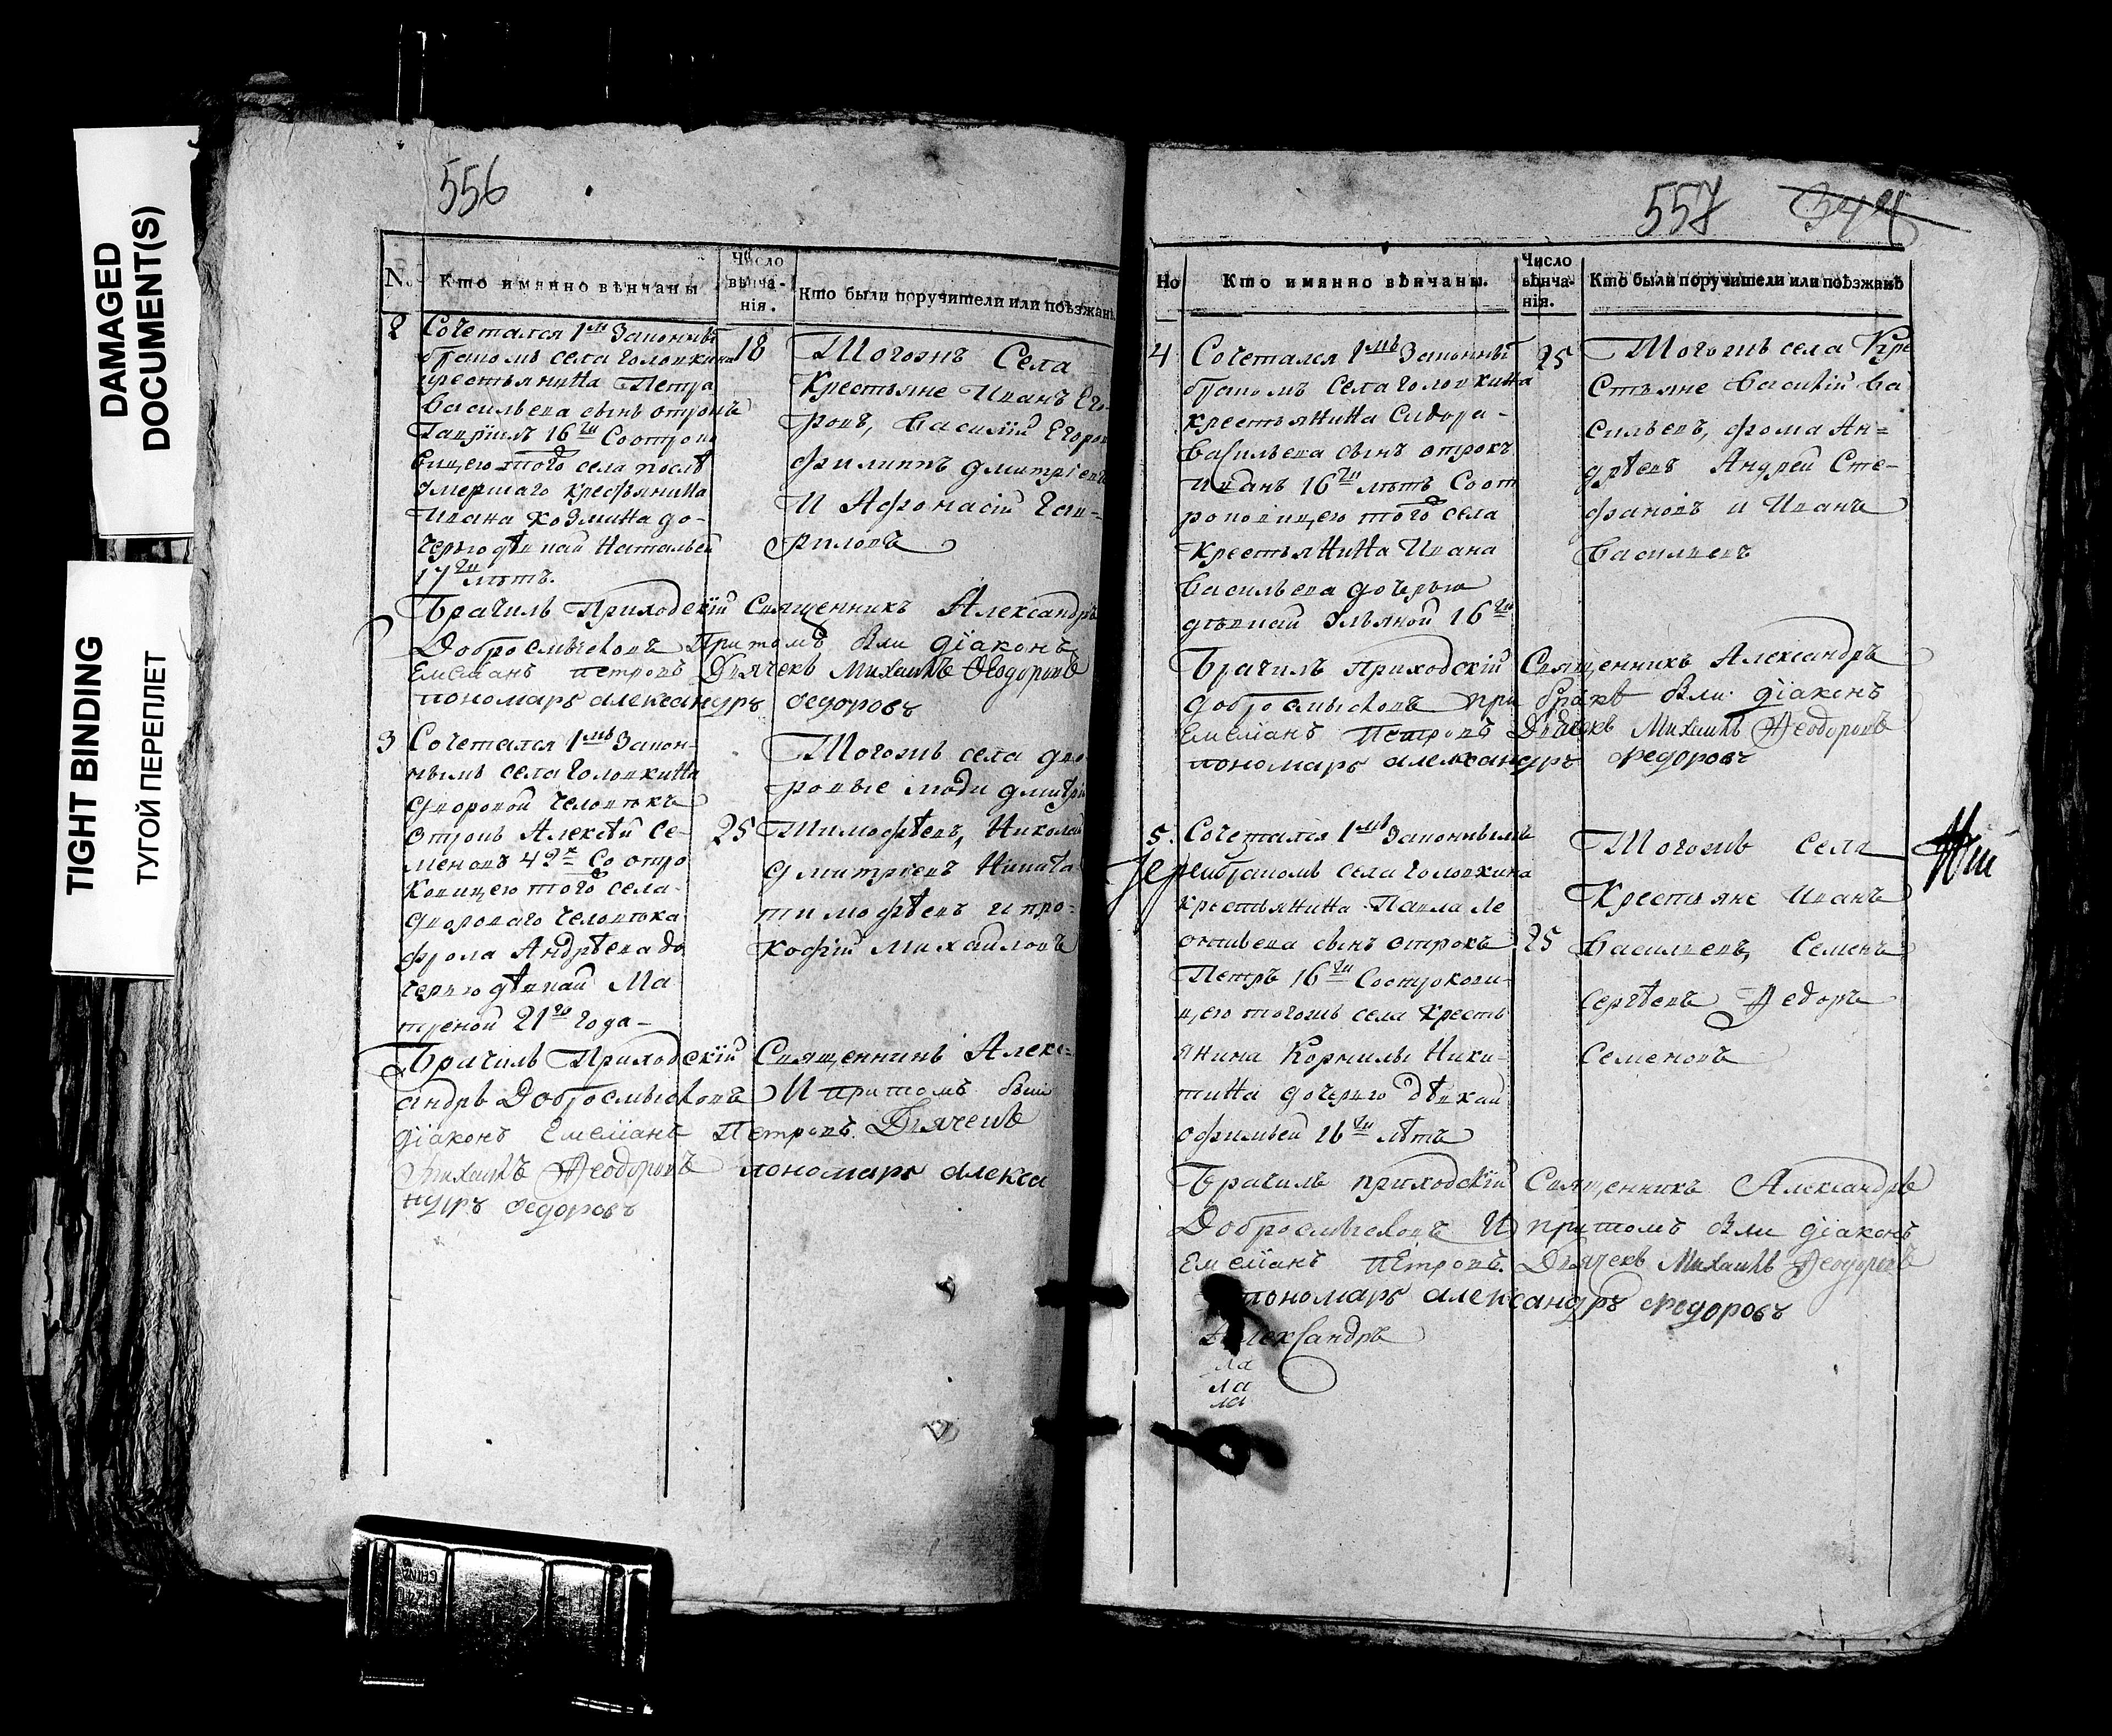 DAMAGED
DOCUMENT(S)
TIGHT BINDING
ТУГОЙ ПЕРЕПЛЕТ
556
N. Кто имянно вѣнчаны
Число вѣнча-
нія.
Кто были поручители или поѣзжанѣ
2 Сочетался 1мъ Законнымъ
бракомъ села Головкина
крестьянина Петра
Васильева сынъ отрокъ
Гаврїилъ 16ти Соотроко
вицею того села послѣ
умершаго крестьянина
Ивана Козмина до-
черью дѣвкай Натальей
17ти лѣтъ.
18
Тогожъ Села
Крестьяне Иванъ Его-
ровъ, Василій Егоровъ
Филиппъ Дмитріевъ
И Афонасій Гав-
риловъ
Врачилъ Приходскїй Священникъ Александръ
Добросмысловъ Притомъ были дїаконъ
Емелїанъ Петровъ Дьячекъ Михаилъ Феодоровъ
пономарь александръ федоровъ
3 Сочетался 1мъ Закон-
нымъ села Головкина
дворовой человѣкъ
отрокъ Алексѣй Се-
меновъ 49 Со отро
ковицею того села
двороваго человѣка
Фрола Андрѣева до
черью дѣвкай Ма
треной 21го года
25
Тогожъ села дво
ровые люди Дмитрій
Тимофѣевъ, Николай
Дмитріевъ Никита
тимофѣевъ и про-
кофїй Михайловъ
Врачилъ Приходскїй Священникъ Алекс-
андръ Добросмысловъ И притомъ были
дїаконъ Емелїанъ Петровъ. Дьячекъ
Михаилъ Феодоровъ пономарь алекса
ндръ федоровъ
557 344
Но Кто имянно вѣнчаны.
Число
вѣнча-
нія.
Кто были поручители или поѣзжанѣ
4 Сочетался 1мъ Законнымъ
бракомъ села Головкина
крестьянина Сидора
Васильева сынъ отрокъ
Иванъ 16ти лѣтъ Соот
роковицею того села
крестьянина Ивана
Васильева дочерью
дѣвкай Ульяной 16ти
25
Тогожъ села Кре
стьяне Василїй Ва
сильевъ, Фома Ан=
дрѣевъ Андрей Сте-
фановъ и Иванъ
Васильевъ
Врачилъ приходскїй Священникъ Александръ
Добросмысловъ при бракѣ были дїаконъ
Емелїанъ Петровъ Дьячекъ Михаилъ Феодоровъ
пономарь александръ федоровъ
5. Сочетался 1мъ Законнымъ
бракомъ села Головкина
крестьянина Павла Ле
онтьева сынъ отрокъ
Петръ 16ти Соотрокови-
цею тогожъ села Кресть
янина Корнилы Ники-
тина дочерью дѣвкай
Офимьей 16ти лѣтъ
25
Тогожъ села
Крестьяне Иванъ
Васильевъ, Семенъ
Сергѣевъ Федоръ
Семеновъ
Врачилъ приходскїй Священникъ Александръ
Добросмысловъ И притомъ были дїаконъ
Емелїанъ Петровъ. Дьячекъ Михаилъ Феодоровъ
пономарь александръ федоровъ
Александръ
ла
ла
ла